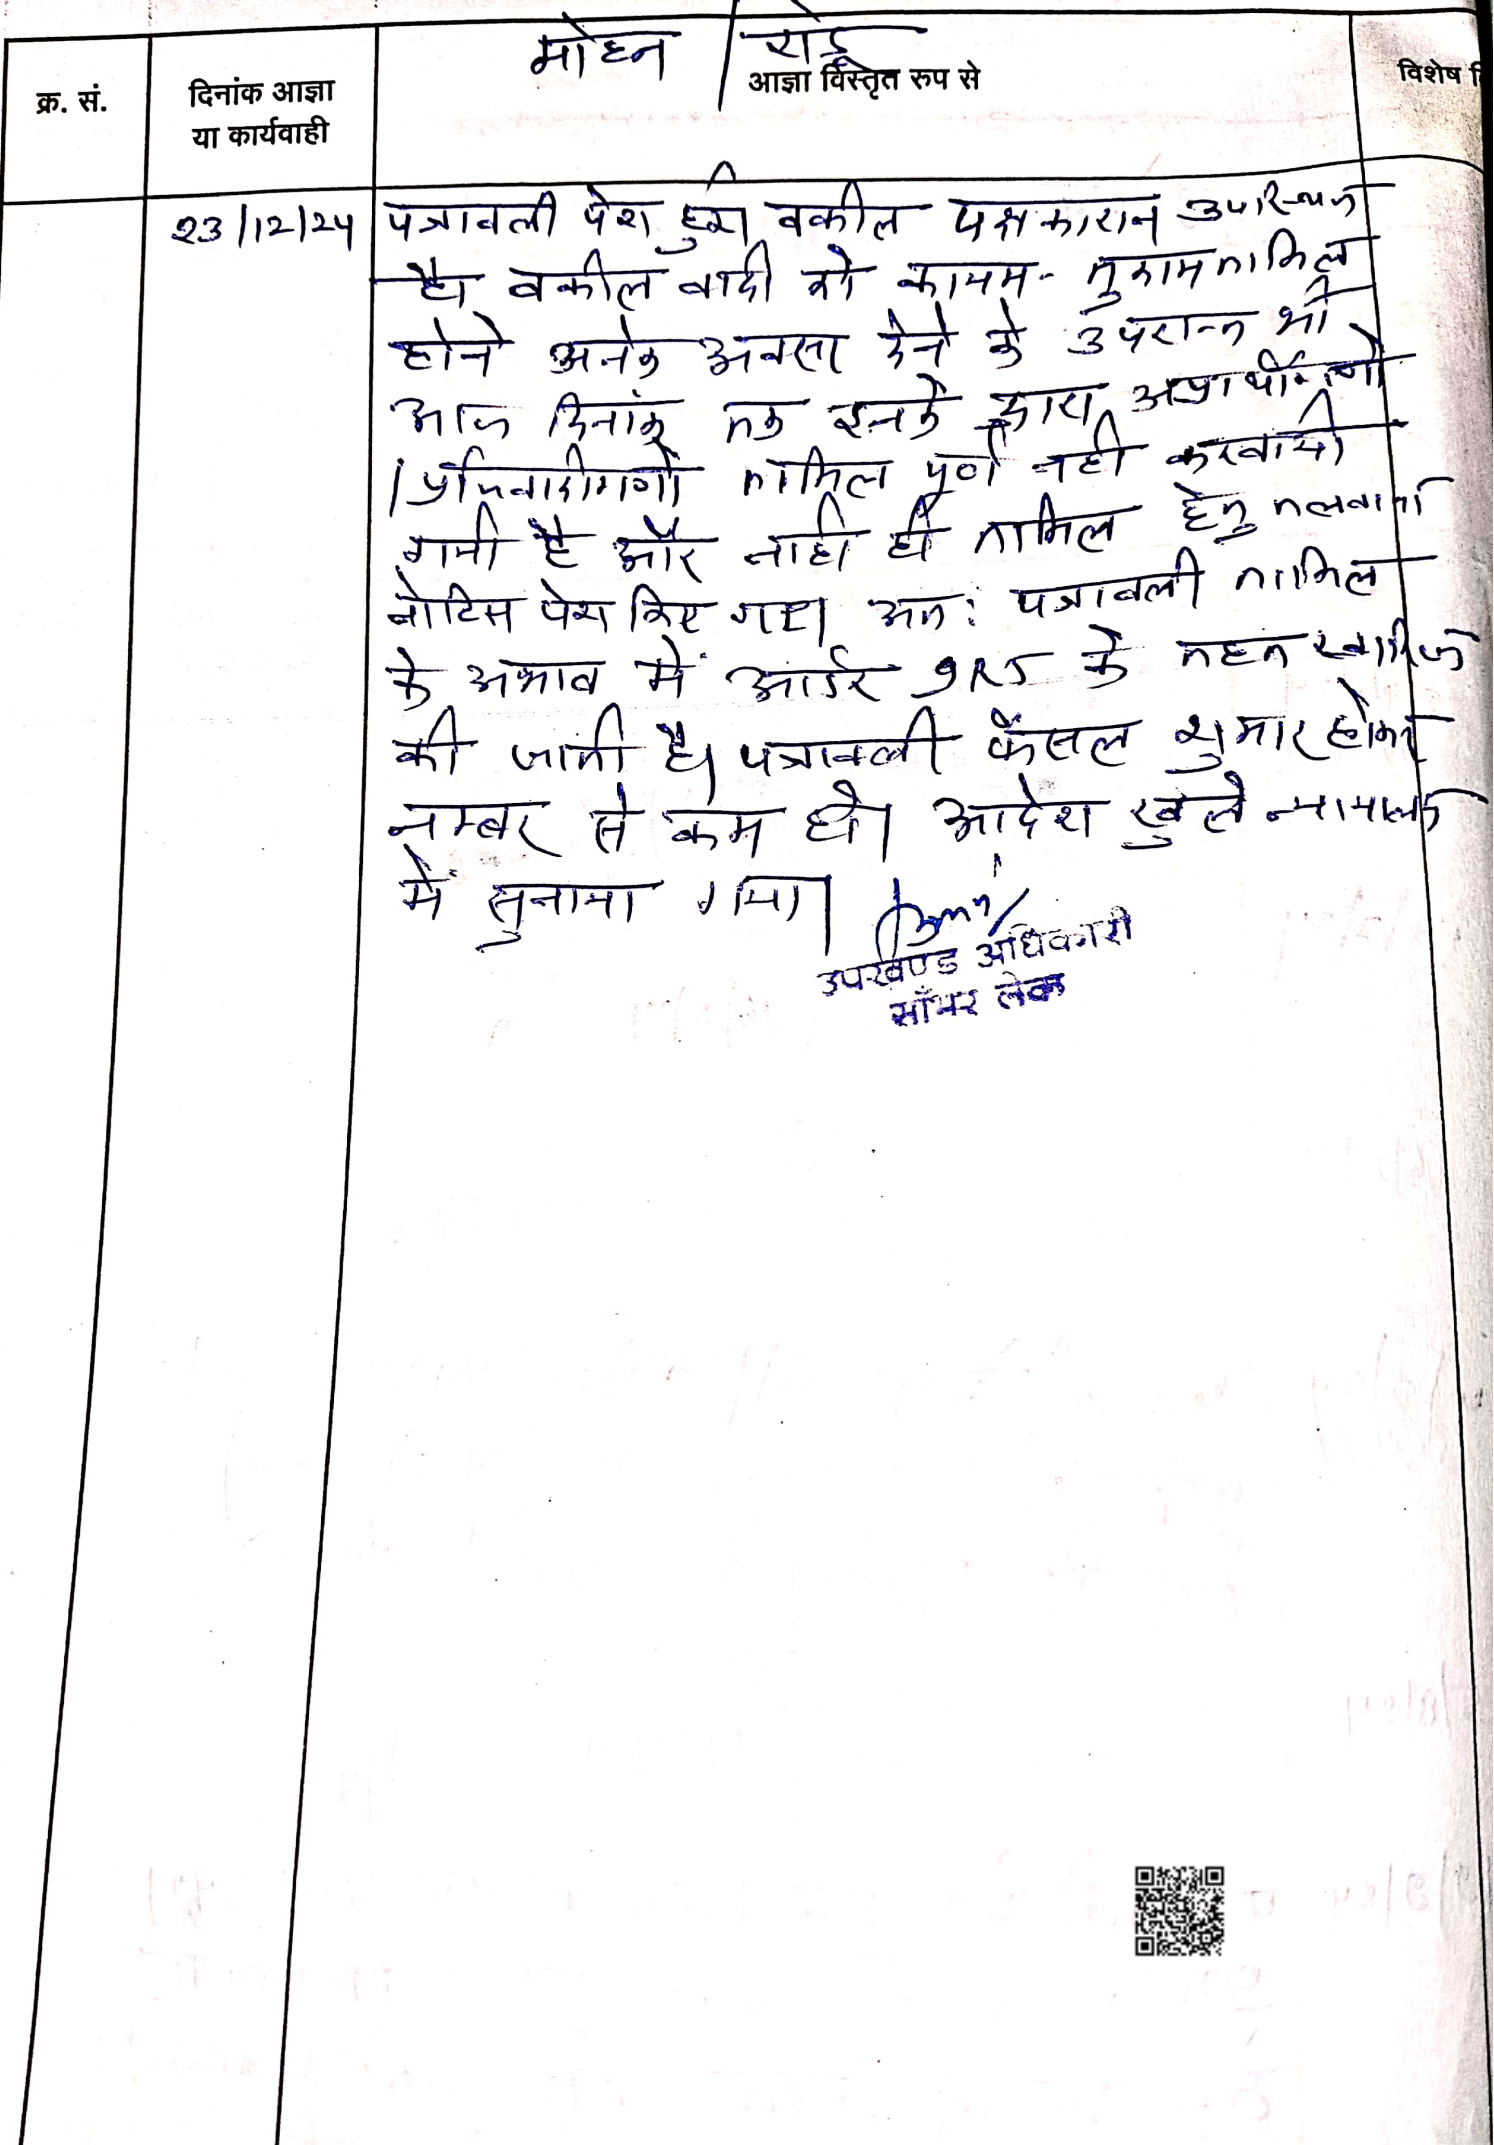 मोहन / राडू
क्र. सं.
दिनांक आज्ञा
या कार्यवाही
आज्ञा विस्तृत रुप से
विशेष
23/12/24
पत्रावली पेश हुई। वकील पक्षकारान उपस्थित
है। वकील वादी को कायम-मुकाम तामिल
होने अनेक अवसर देने के उपरान्त भी
आज दिनांक तक इनके द्वारा अप्रार्थीगणों
/प्रतिवादीगणों तामिल पूर्ण नही करवायी
गयी है और नाही ही तामिल हेतु तलवाना
नोटिस पेश किए गए। अतः पत्रावली तामिल
के अभाव में आर्डर 9R5 के तहत खारिज
की जाती है। पत्रावली फैसल शुमार होकर
नम्बर से कम हो। आदेश खुले न्यायालय
में सुनाया गया।
उपखण्ड अधिकारी
साँभर लेक